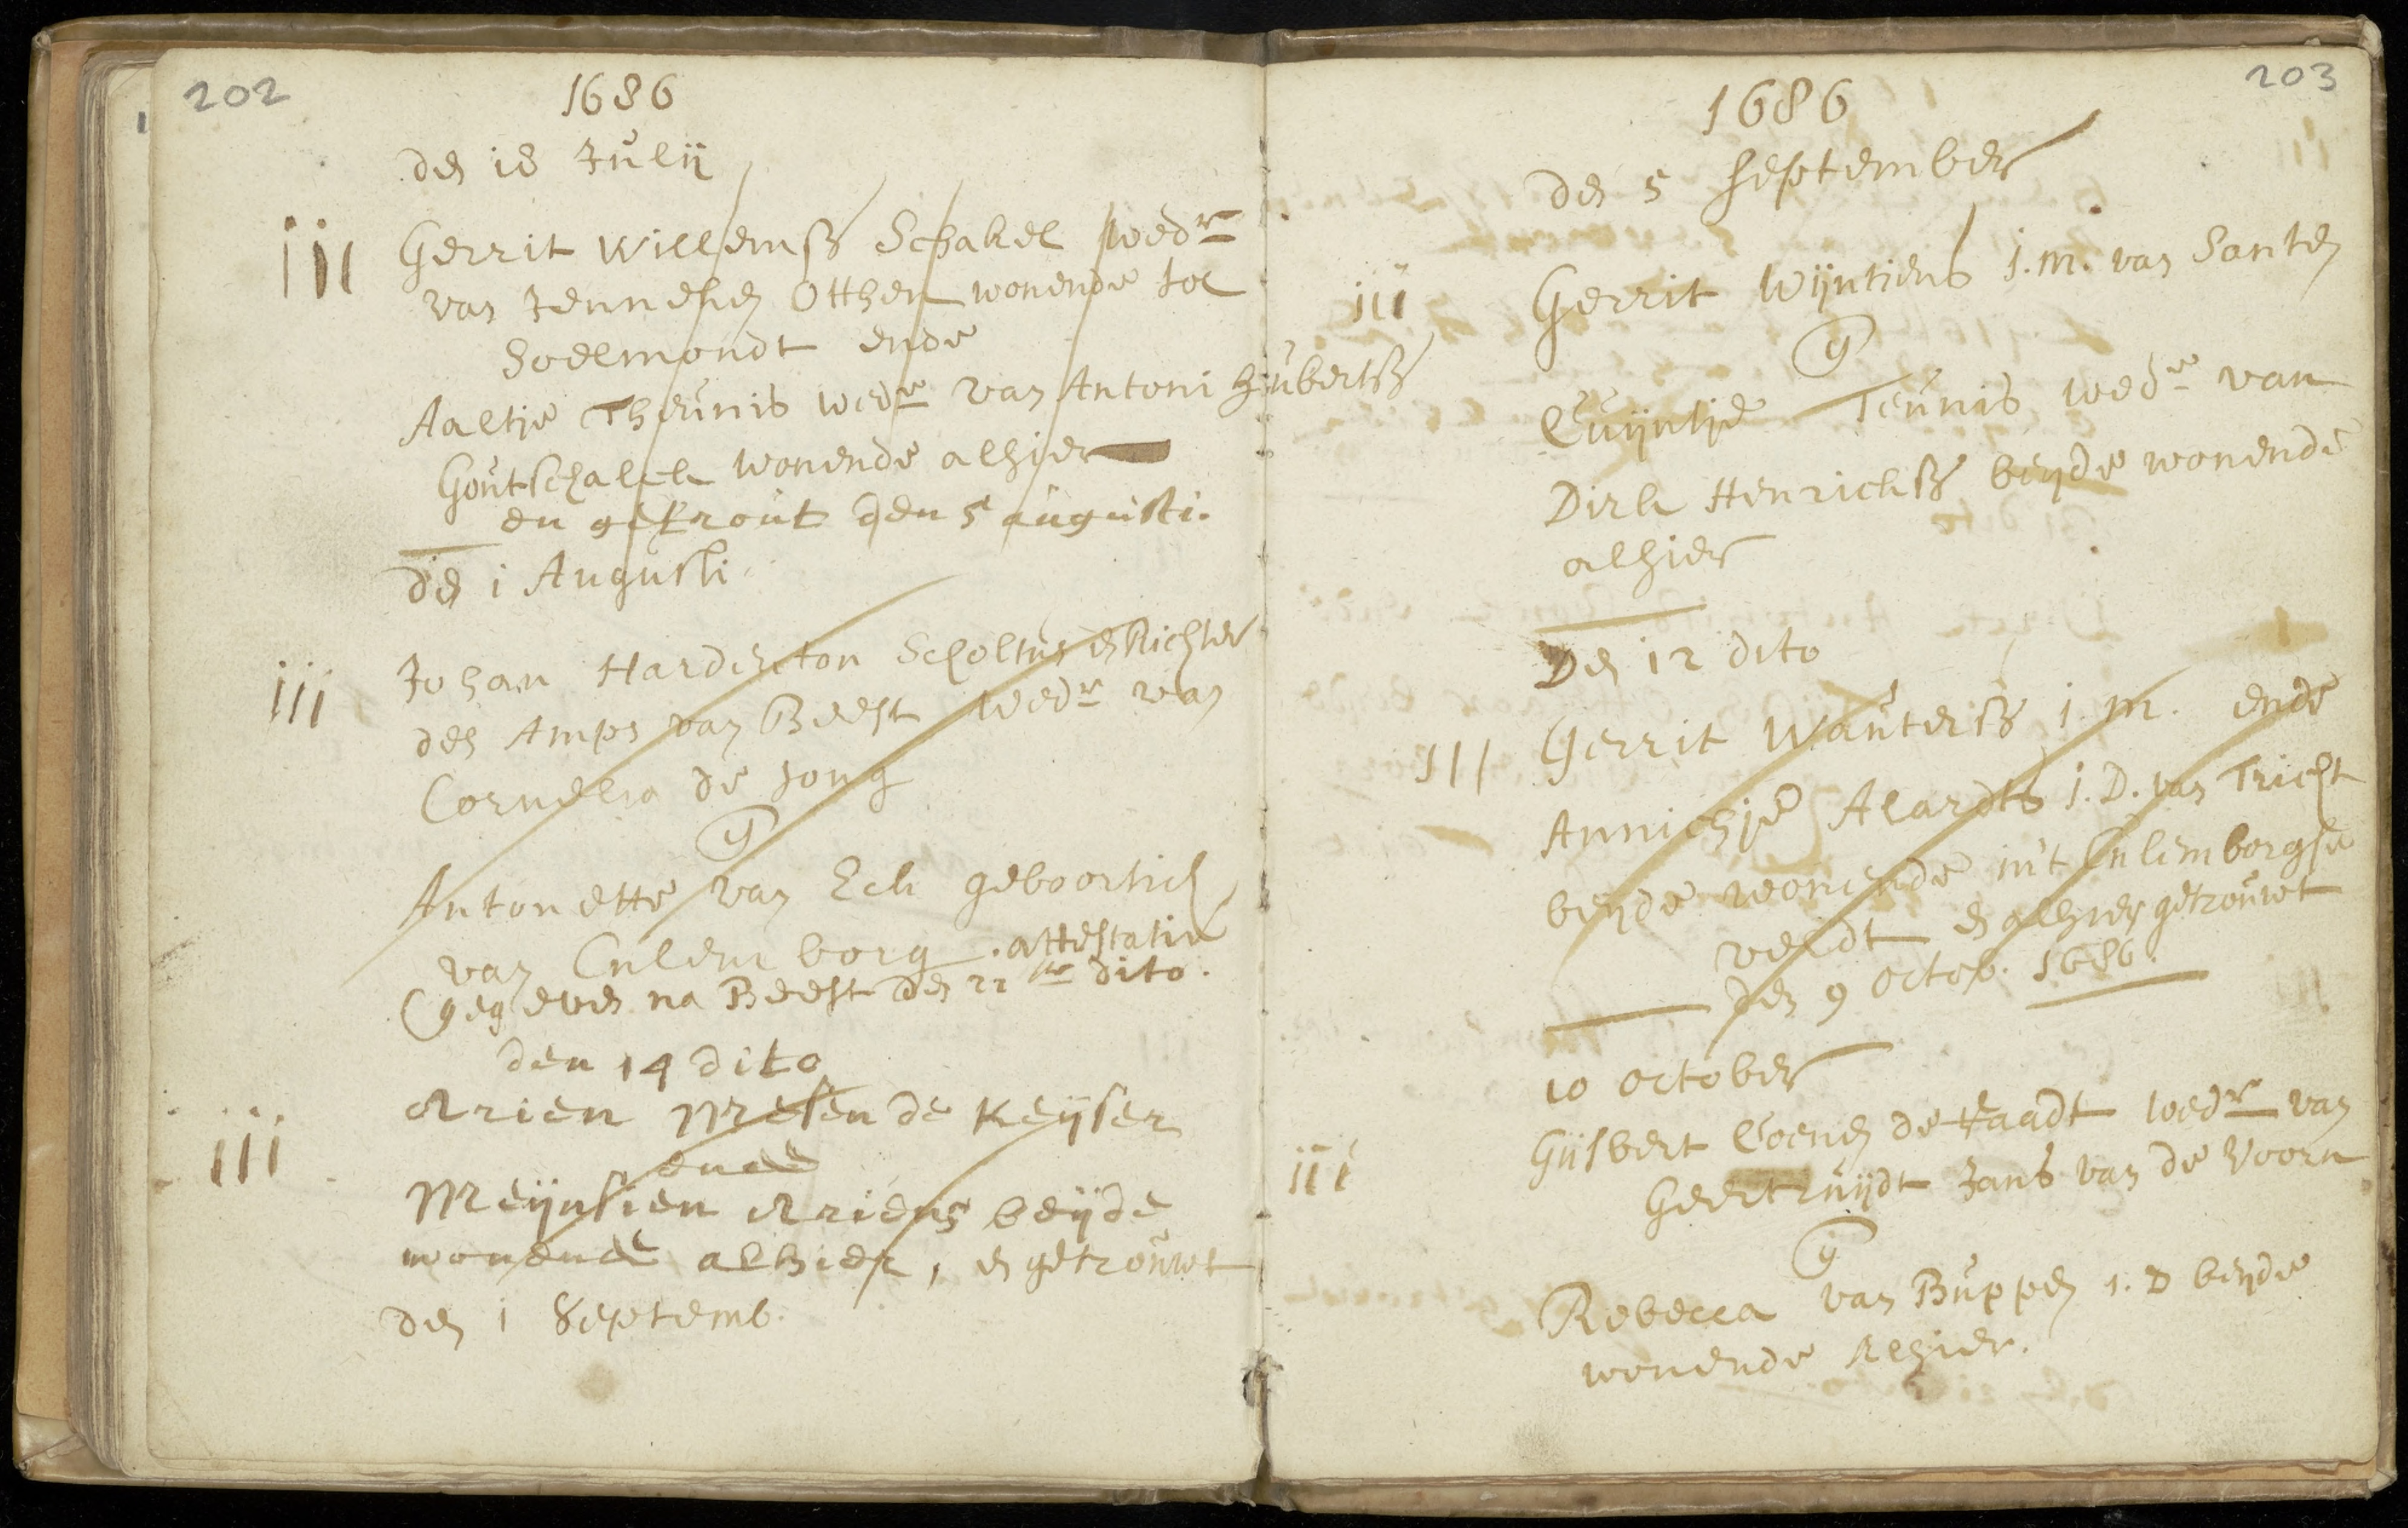 202
1686
den 18 Julij
iii Gerrit Willemss Schakel wedr
van Jenneken Otthen wonende tot
Soelmondt ende
Aaltje Theunis wede van Antoni Hubertss
Goutschalck wonende alhier
en getrout den 5 augusti.
den 1 Augusti
iii Johan Hardenton Scholtus en Richter
des Amps van Beest wedr van
Cornelia de Jong
en
Antonette van Eck geboortich
van Culemborg. attestatie
gegeven na Beest den 22 dito.
den 14 dito
iii Arien Mesen de Keijser
ende
Meijnsien Ariens beijde
wonende alhier, en getrouwt
den 1 Septemb.
203
1686
den 5 September
iii Gerrit Wijntiens j.m. van Santen
en
Quijntje Teunis wede van
Dirk Henrickss beijde wonende
alhier
Den 12 dito
iii Gerrit Wauterss j.m. ende
Annichje Alardts j.D. van Tricht
beijde wonende in't Culemborgse
veldt en alhier getrouwt
den 9 octob. 1686.
10 october
iii Gijsbert Coenen de Raadt wedr van
Geertruijdt Jans van de Voorn
en
Rebecca van Buppen j.D beijde
wonende Alhier.